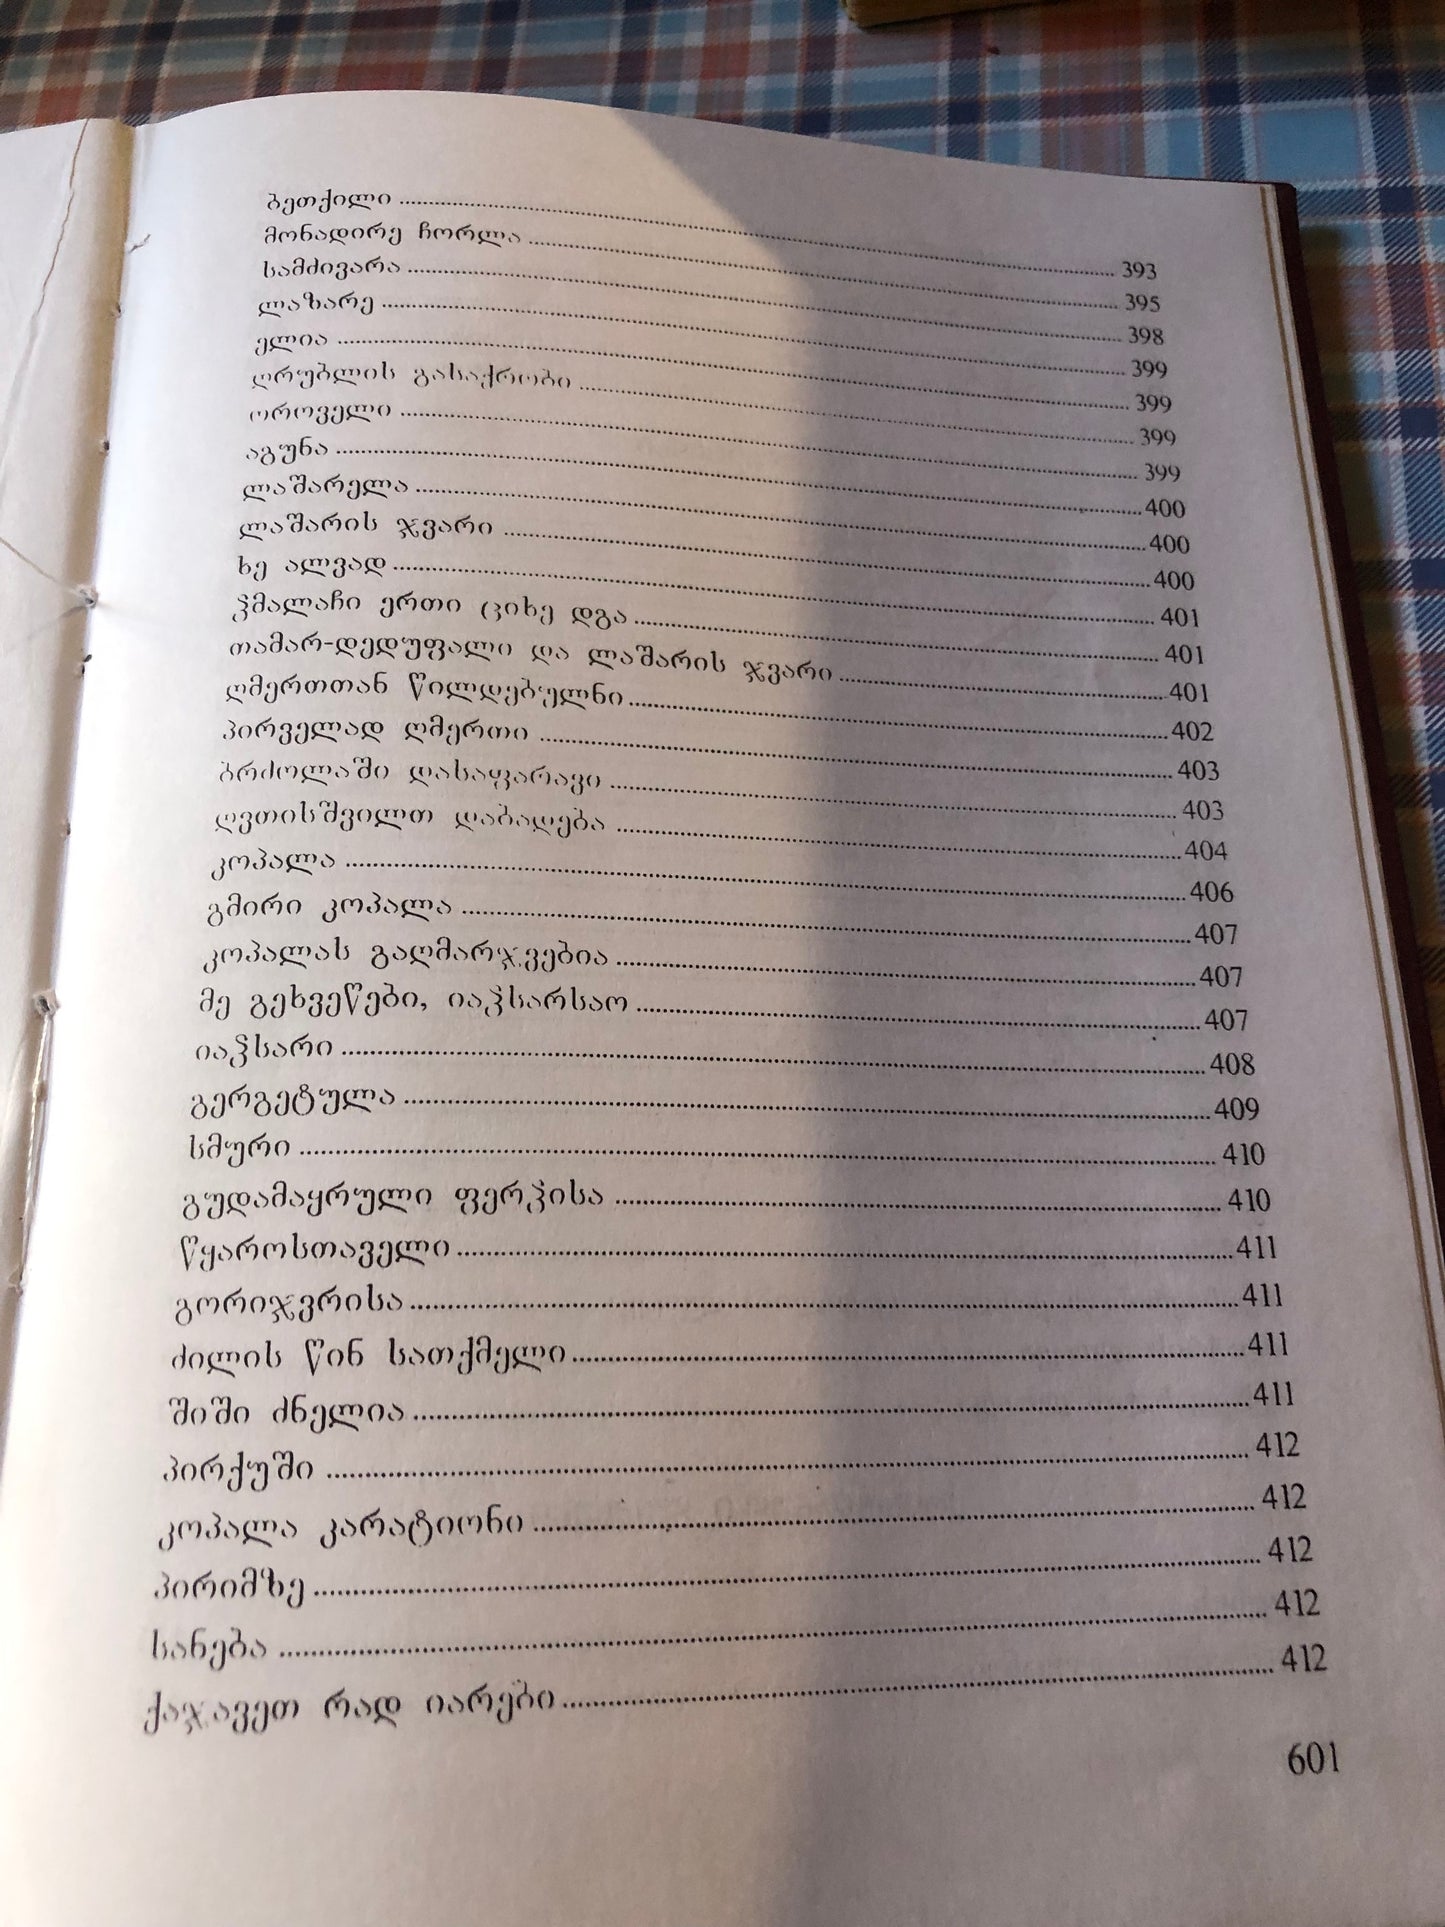 ბეთქილი ........ 393
მონადირე ჩორლა ........ 395
სამძივარა ........ 398
ლაზარე ........ 399
ელია ........ 399
ღრუბლის გასაქრობი ........ 399
ოროველი ........ 399
აგუნა ........ 400
ლაშარელა ........ 400
ლაშარის ჯვარი ........ 400
ხე ალვად ........ 401
ჴმალაჩი ერთი ციხე დგა ........ 401
თამარ-დედუფალი და ლაშარის ჯვარი ........ 401
ღმერთთან წილდებულნი ........ 402
პირველად ღმერთი ........ 403
ბრძოლაში დასაფარავი ........ 403
ღვთისშვილთ დაბადება ........ 404
კოპალა ........ 406
გმირი კოპალა ........ 407
კოპალას გაღმარჯვებია ........ 407
მე გეხვეწები, იაჴსარსაო ........ 407
იაჴსარი ........ 408
გერგეტულა ........ 409
სმური ........ 410
გუდამაყრული ფერჴისა ........ 410
წყაროსთაველი ........ 411
გორიჯვრისა ........ 411
ძილის წინ სათქმელი ........ 411
შიში ძნელია ........ 411
პირქუში ........ 412
კოპალა კარატიონი ........ 412
პირიმზე ........ 412
სანება ........ 412
ქაჯავეთ რად იარები ........ 412
601